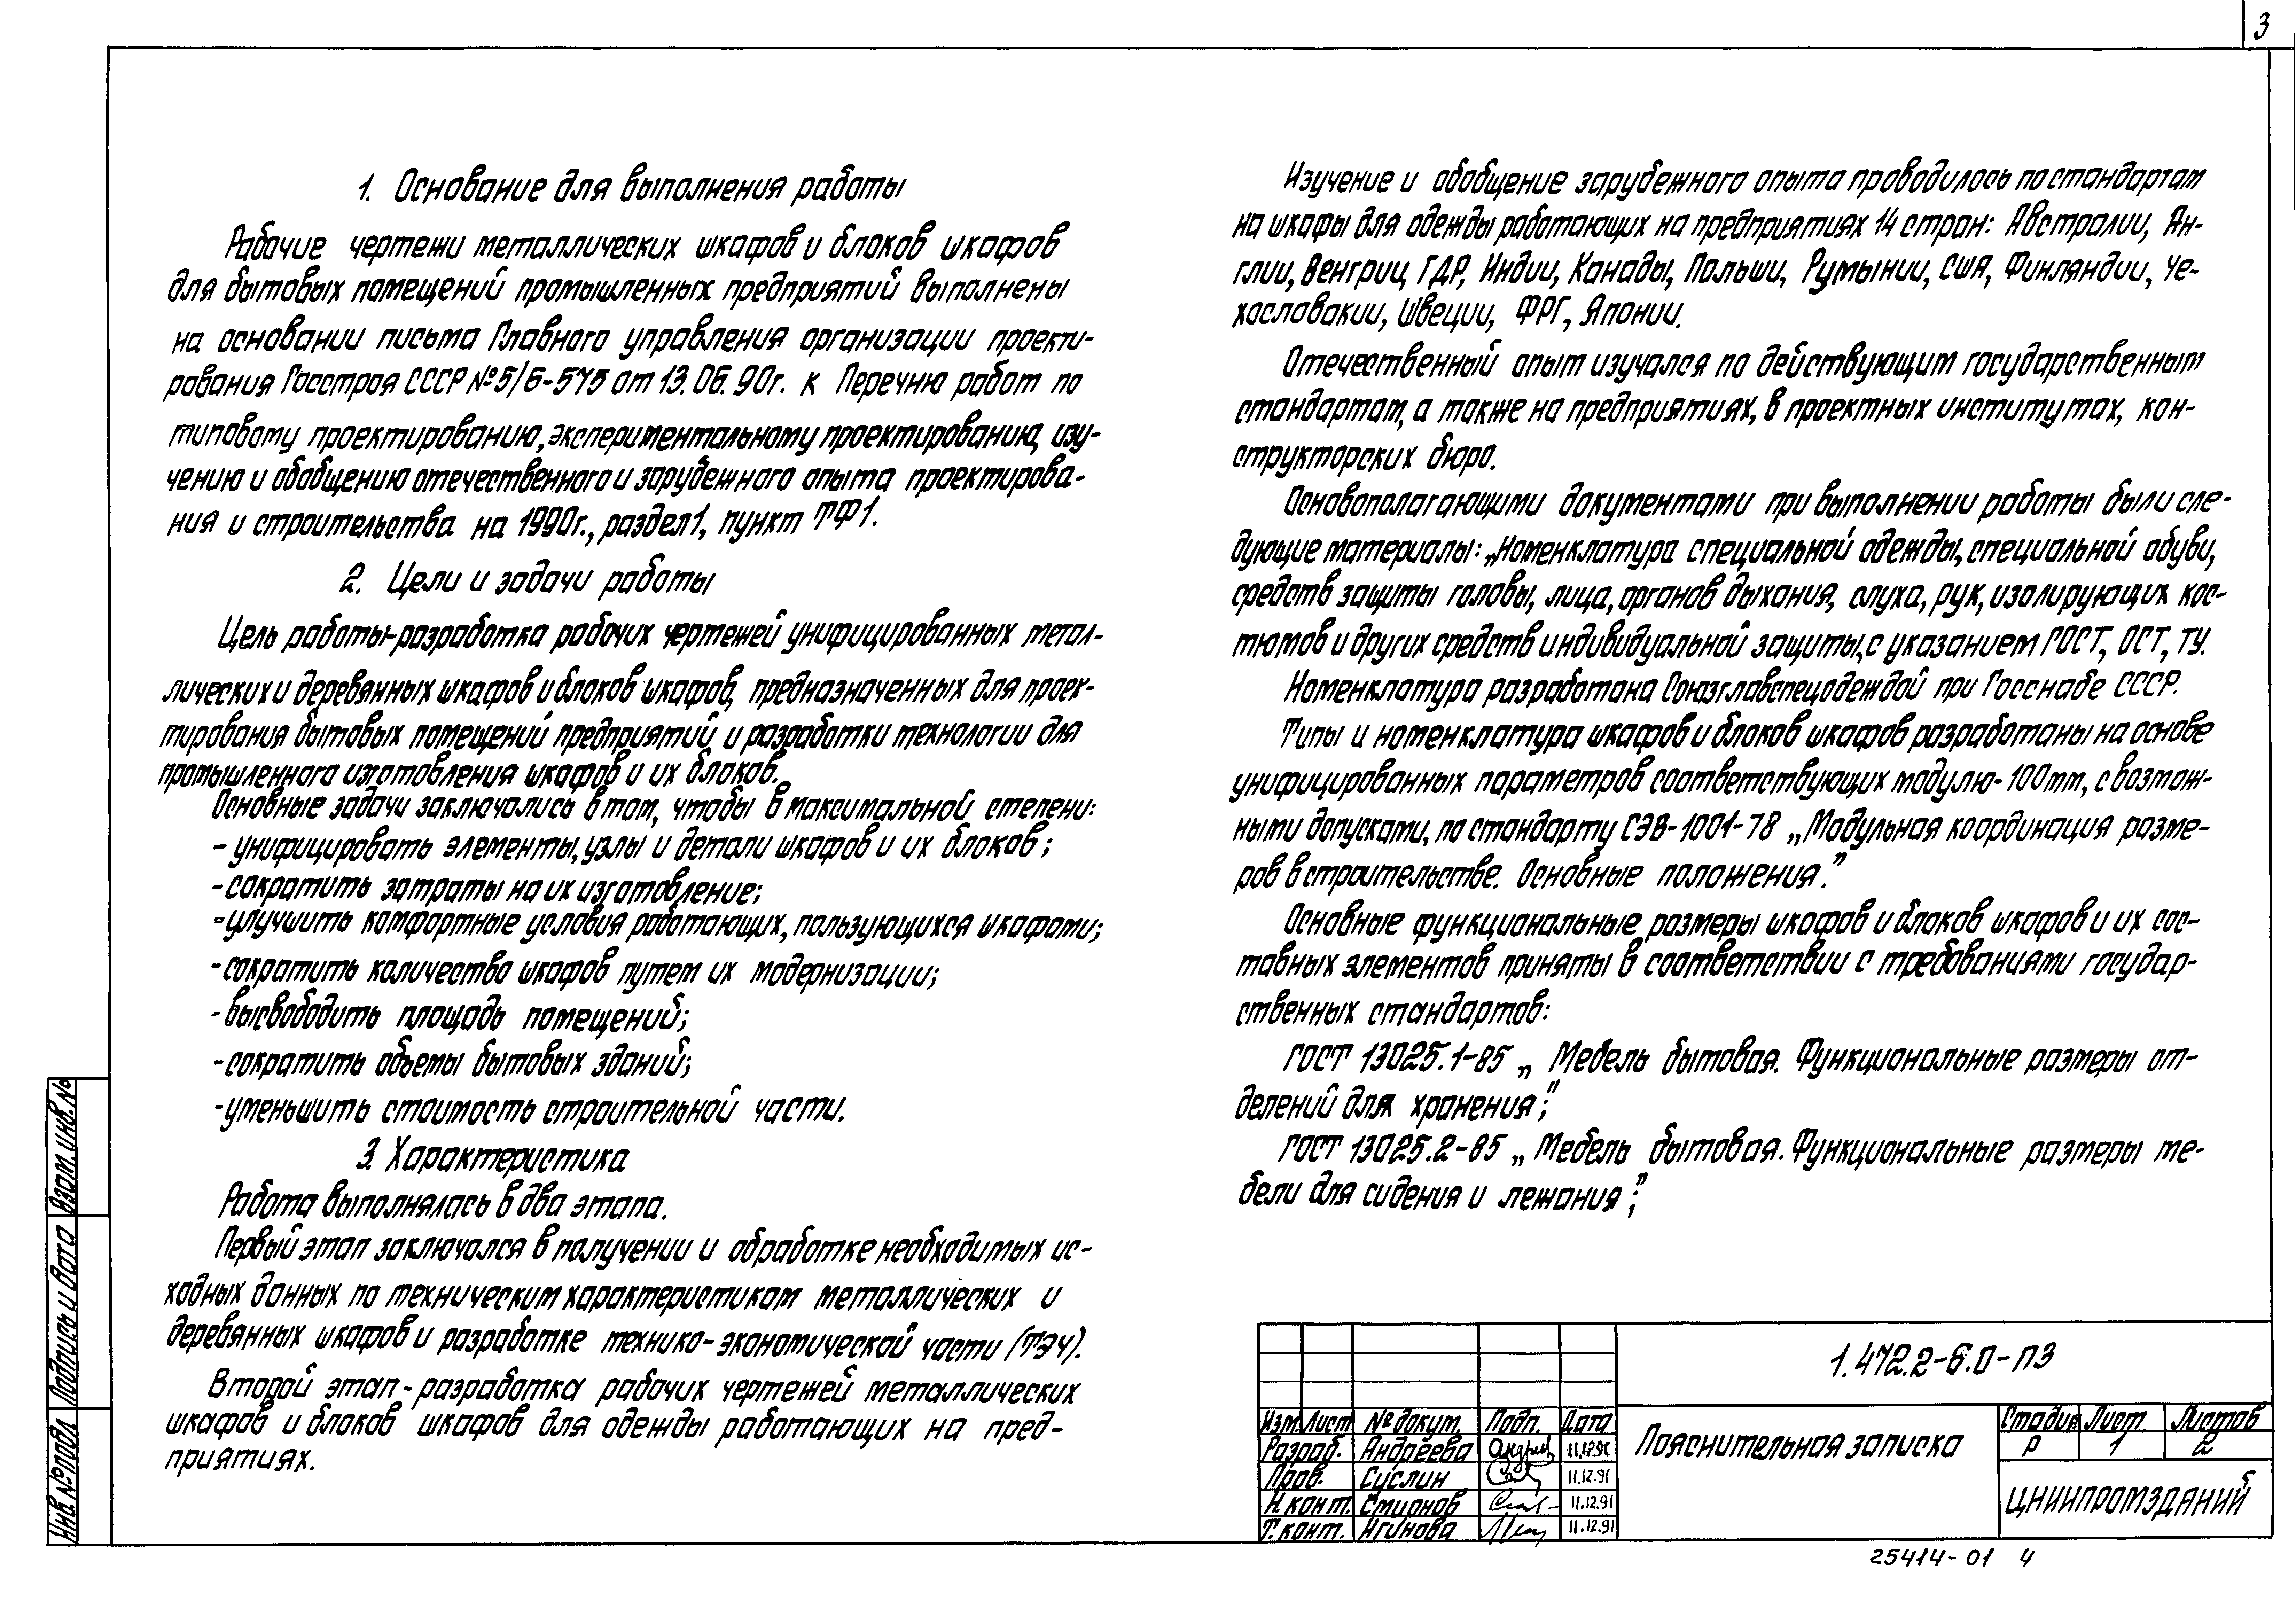 3
1. Основание для выполнения работы
Рабочие чертежи металлических шкафов и блоков шкафов
для бытовых помещений промышленных предприятий выполнены
на основании письма Главного управления организации проекти-
рования Госстроя СССР №5/6-575 от 13.06.90г. к Перечню работ по
типовому проектированию, экспериментальному проектированию, изу-
чению и обобщению отечественного и зарубежного опыта проектирова-
ния и строительства на 1990г., раздел 1, пункт ТФ1.
2. Цели и задачи работы
Цель работы-разработка рабочих чертежей унифицированных метал-
лических и деревянных шкафов и блоков шкафов, предназначенных для проек-
тирования бытовых помещений предприятий и разработки технологии для
промышленного изготовления шкафов и их блоков.
Основные задачи заключались в том, чтобы в максимальной степени:
- унифицировать элементы, узлы и детали шкафов и их блоков;
-сократить затраты на их изготовление;
-улучшить комфортные условия работающих, пользующихся шкафами;
-сократить количество шкафов путем их модернизации;
-высвободить площадь помещений;
-сократить объемы бытовых зданий;
-уменьшить стоимость строительной части.
3. Характеристика
Работа выполнялась в два этапа.
Первый этап заключался в получении и обработке необходимых ис-
ходных данных по техническим характеристикам металлических и
деревянных шкафов и разработке технико-экономической части (ТЭЧ).
Второй этап-разработка рабочих чертежей металлических
шкафов и блоков шкафов для одежды работающих на пред-
приятиях.
Изучение и обобщение зарубежного опыта проводилось по стандартам
на шкафы для одежды работающих на предприятиях 14 стран: Австралии, Ан-
глии, Венгрии, ГДР, Индии, Канады, Польши, Румынии, США, Финляндии, Че-
хословакии, Швеции, ФРГ, Японии.
Отечественный опыт изучался по действующим государственным
стандартам, а также на предприятиях, в проектных институтах, кон-
структорских бюро.
Основополагающими документами при выполнении работы были сле-
дующие материалы: „Номенклатура специальной одежды, специальной обуви,
средств защиты головы, лица, органов дыхания, слуха, рук, изолирующих кос-
тюмов и других средств индивидуальной защиты, с указанием ГОСТ, ОСТ, ТУ.
Номенклатура разработана Союзглавспецодеждой при Госснабе СССР.
Типы и номенклатура шкафов и блоков шкафов разработаны на основе
унифицированных параметров соответствующих модулю-100мм, с возмож-
ными допусками, по стандарту СЭВ-1001-78 „Модульная координация разме-
ров в строительстве. Основные положения."
Основные функциональные размеры шкафов и блоков шкафов и их сос-
тавных элементов приняты в соответствии с требованиями государ-
ственных стандартов:
ГОСТ 13025.1-85 „Мебель бытовая. Функциональные размеры от-
делений для хранения";
ГОСТ 13025.2-85 „Мебель бытовая. Функциональные размеры ме-
бели для сидения и лежания";
Взам. инв. №
Подпись и дата
Инв. № подл.
1.472.2-6.0-ПЗ
Изм. Лист № докум. Подп. Дата
Разраб. Андреева 11.12.91
Пров. Суслин 11.12.91
Н. конт. Смирнов 11.12.91
Т. конт. Нгинова 11.12.91
Пояснительная записка
Стадия Лист Листов
Р 1 2
ЦНИИПРОМЗДАНИЙ
25414-01 4